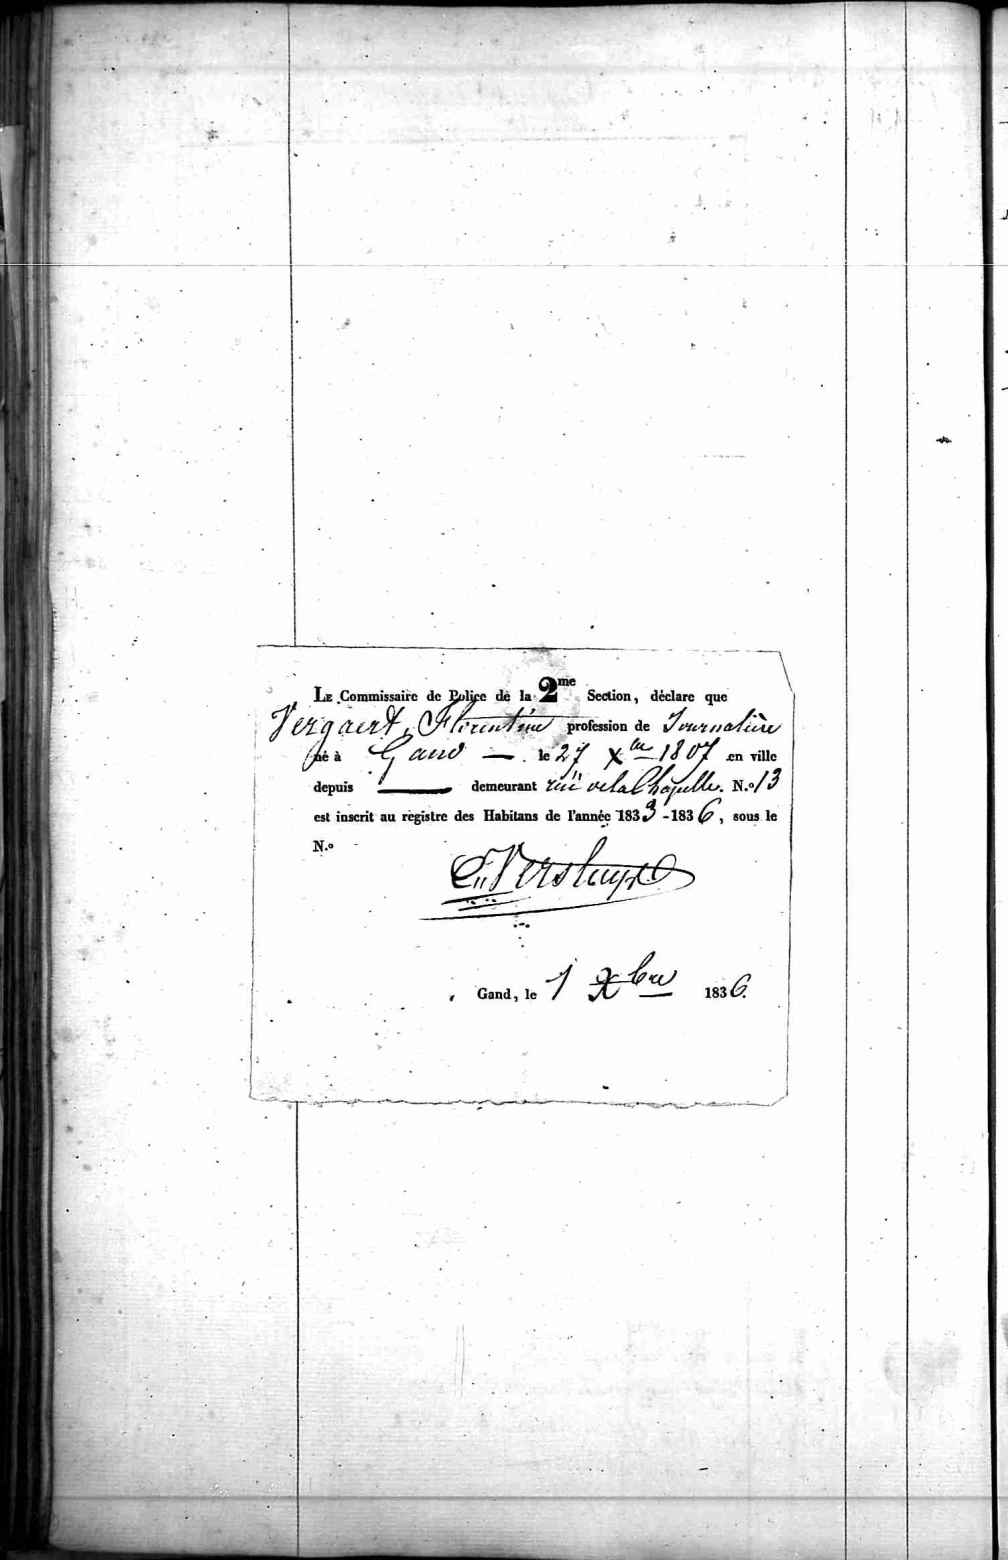 LE Commissaire de Police de la 2me Section, déclare que
Vergaert, Florentine profession de Journalière
né à Gand — le 27 Xbre 1807 en ville
depuis — demeurant rue de la Chapelle. N.o 13
est inscrit au règistre des Habitans de l'année 1833-1836, sous le
N.o
Gand, le 1 Xbre 1836.